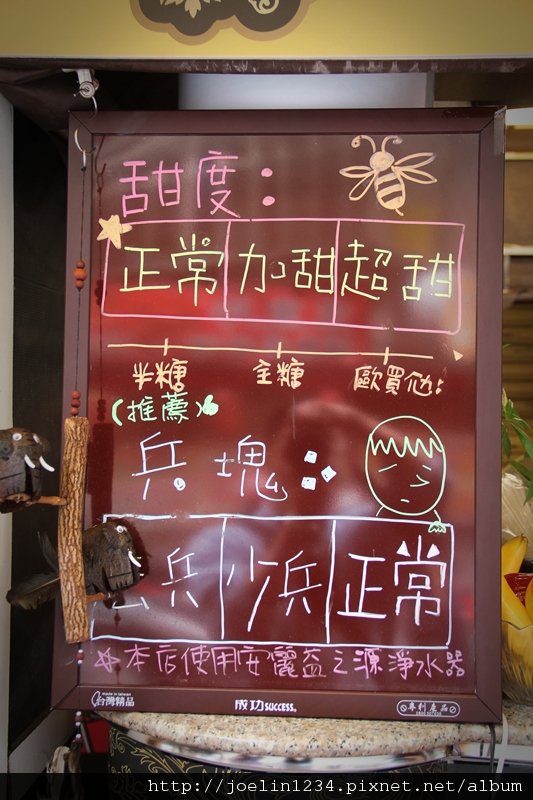 甜度：
正常 加甜 超甜
半糖 全糖 歐買尬！
(推薦)
兵塊：
兵 少兵 正常
☆本店使用安麗益之源淨水器
made in taiwan
台灣精品 成功 SUCCESS® 專利產品
http://joelin1234.pixnet.net/album